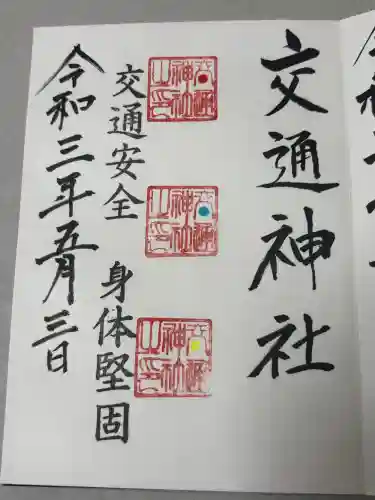 交通神社
交通神社之印
交通神社之印
交通神社之印
交通安全 身体堅固
令和三年五月三日